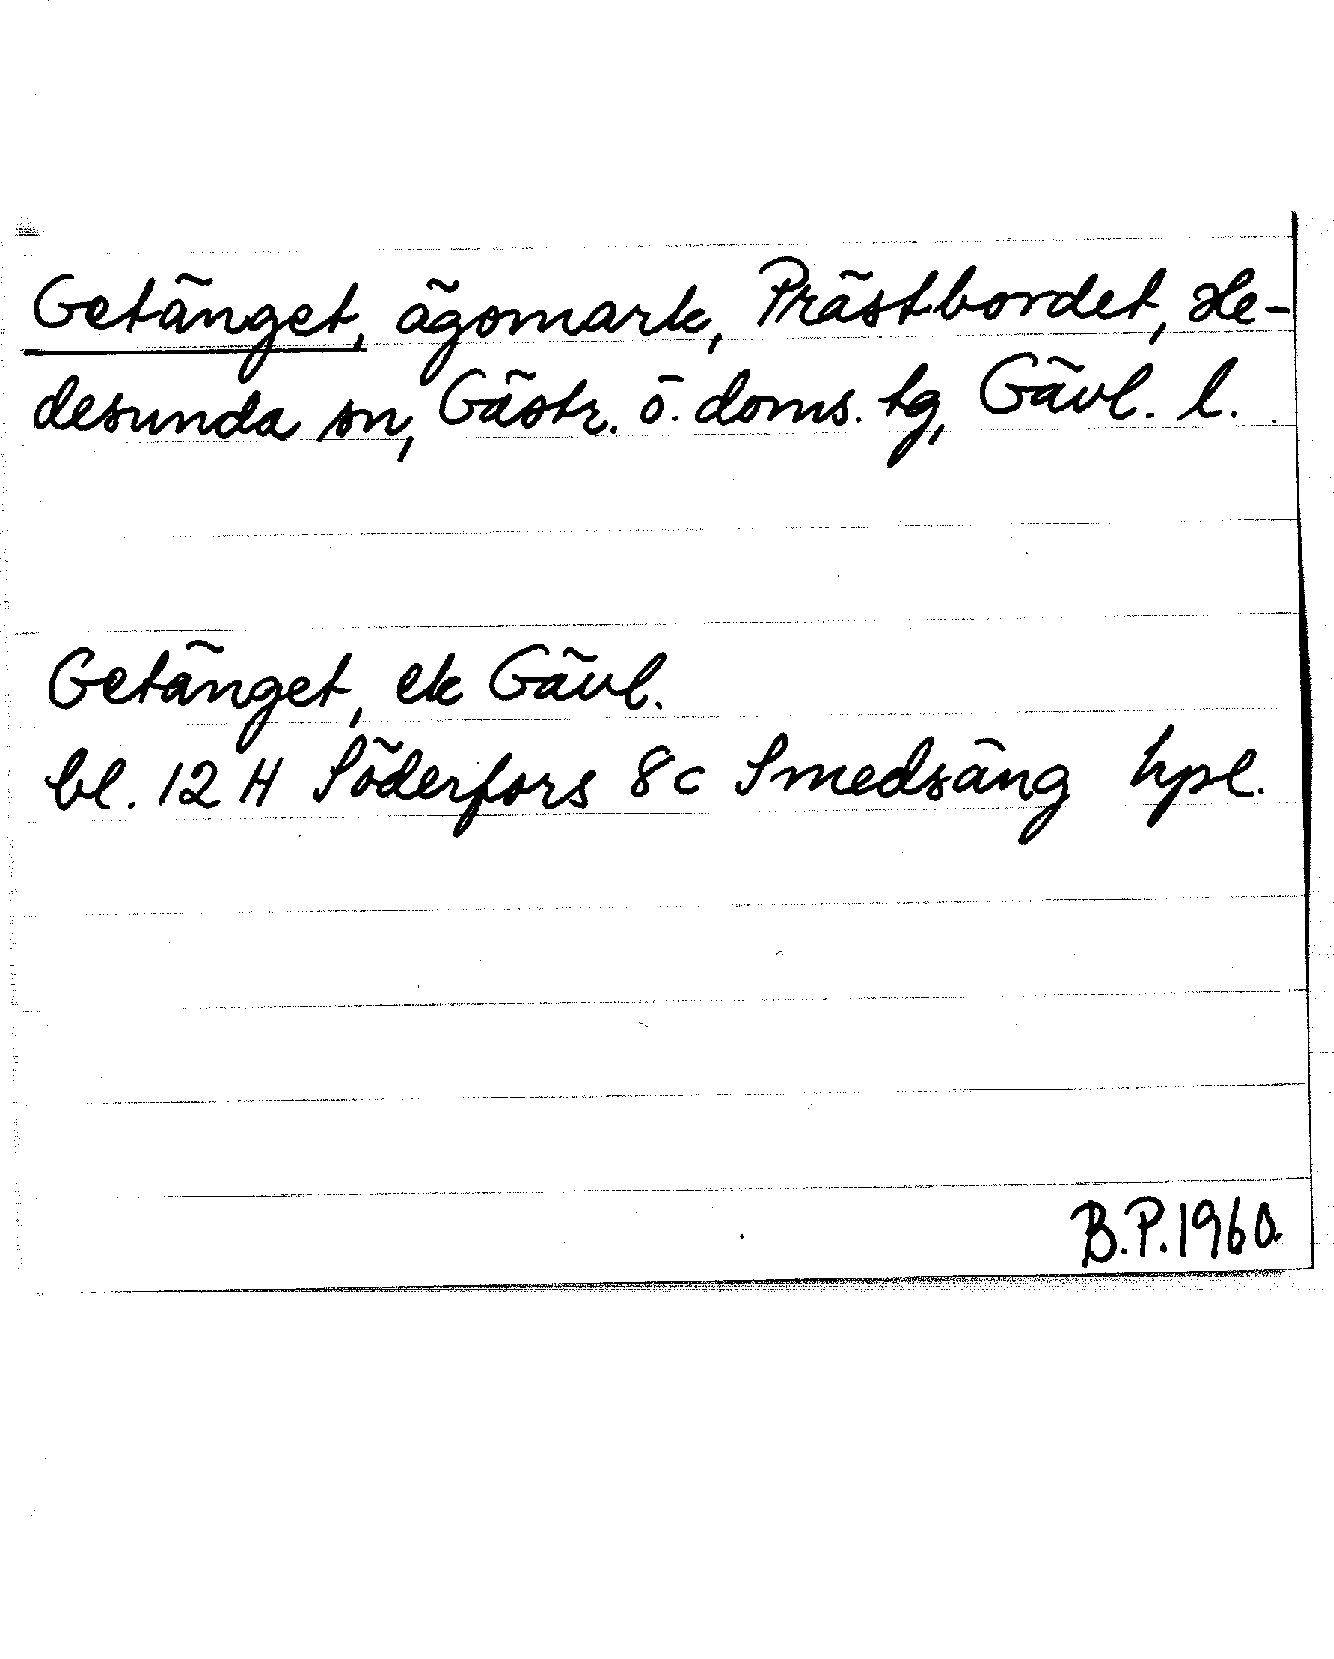 Getänget, ägomark, Prästbordet, He-
desunda sn, Gästr. ö. doms. tg, Gävl. l.
Getänget, ek Gävl.
bl. 12 H Söderfors 8c Smedsäng hpl.
B.P.1960.